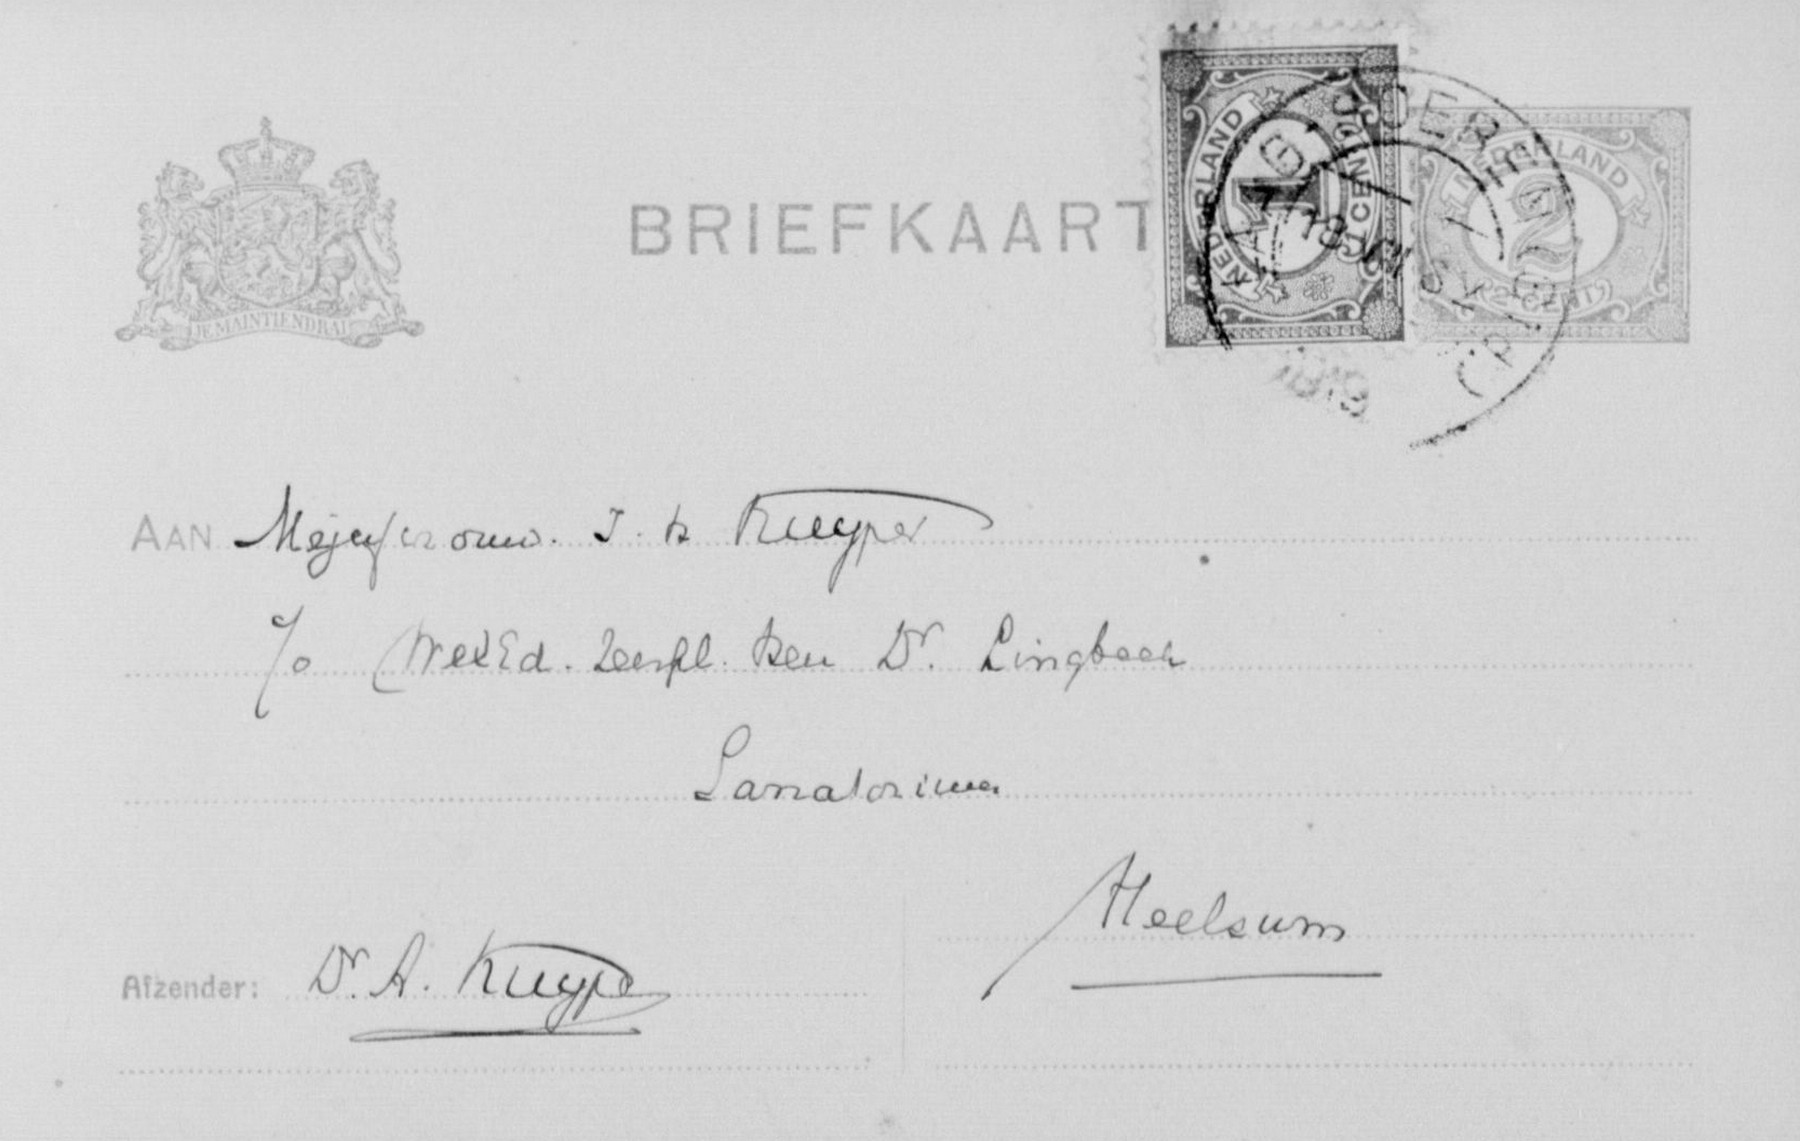 BRIEFKAART
JE MAINTIENDRAI
NEDERLAND
1
1 CENT
NEDERLAND
2
2 CENT
1919
AAN Mejufvrouw. J. h Kuyper
c/o WelEd. Zeergel. Heer Dr. Lingbeek
Sanatorium
Heelsum
Afzender: Dr. A. Kuyper